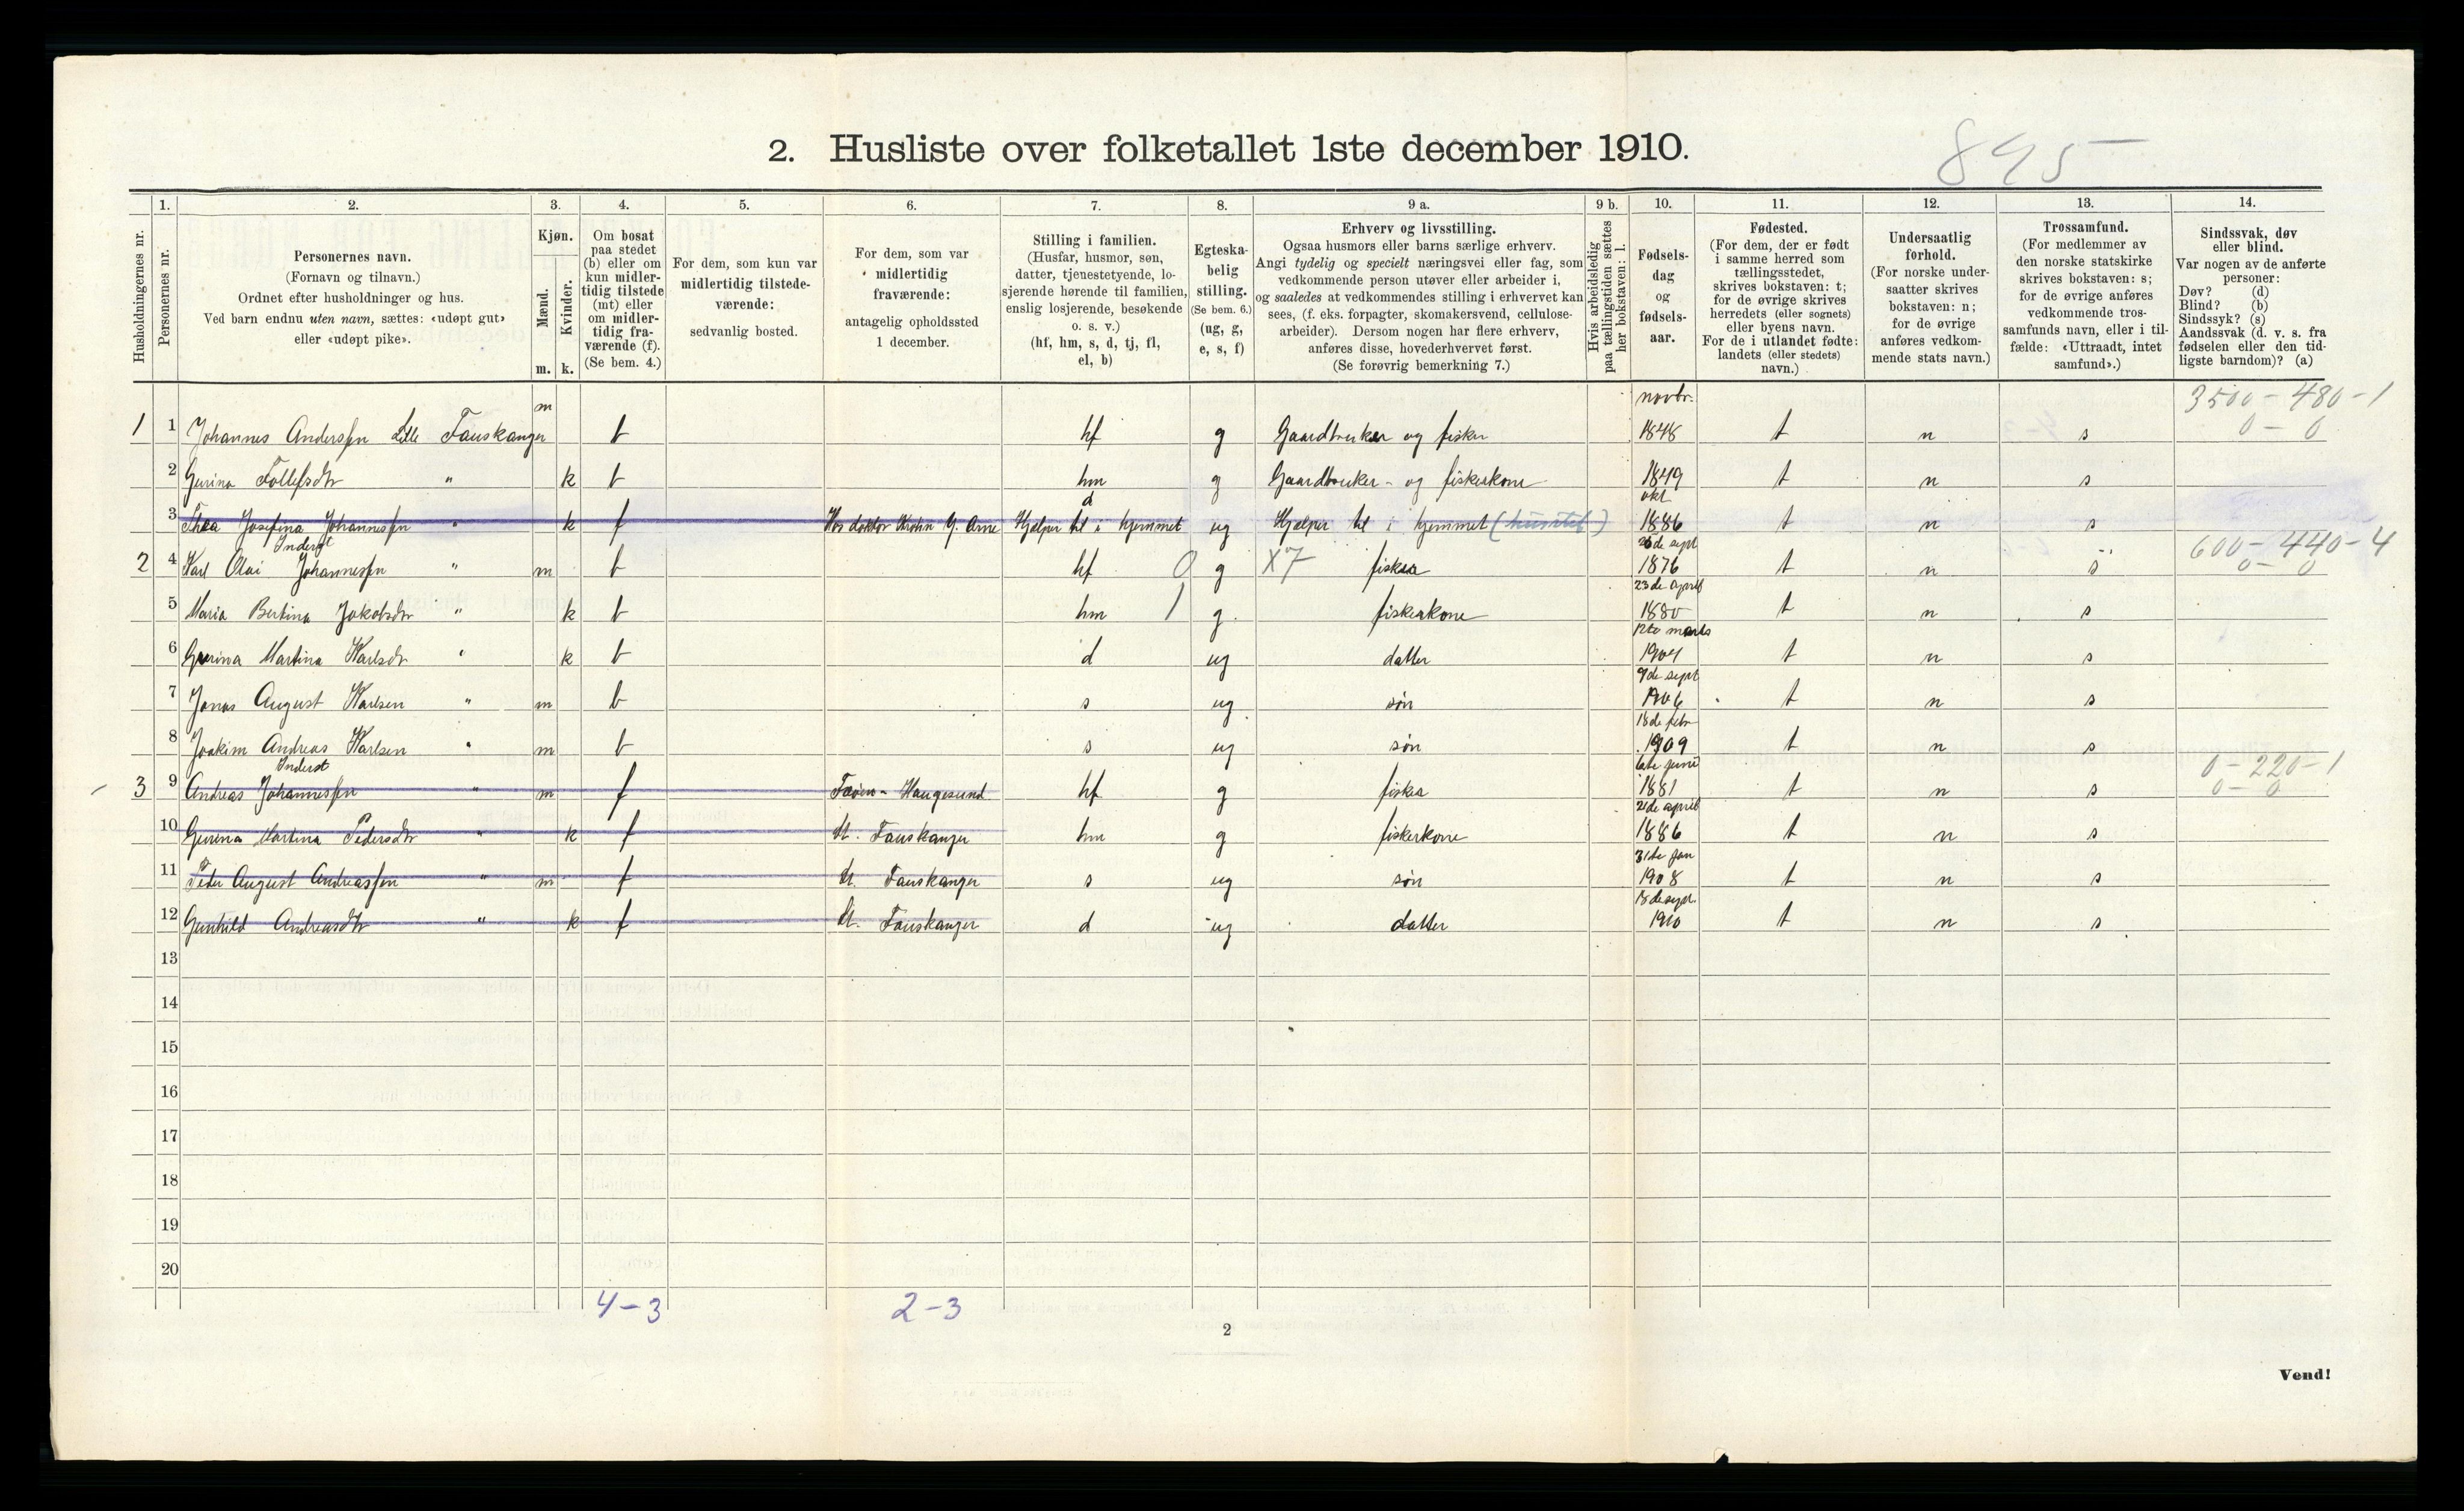 2. Husliste over folketallet 1ste december 1910.
895
1. 2. 3. 4. 5. 6. 7. 8. 9 a. 9 b. 10. 11. 12. 13. 14.
Husholdningernes nr.
Personernes nr.
Personernes navn.
(Fornavn og tilnavn.)
Ordnet efter husholdninger og hus.
Ved barn endnu uten navn, sættes: «udøpt gut»
eller «udøpt pike».
Kjøn.
Mænd.
Kvinder.
m. k.
Om bosat
paa stedet
(b) eller om
kun midler-
tidig tilstede
(mt) eller
om midler-
tidig fra-
værende (f).
(Se bem. 4.)
For dem, som kun var
midlertidig tilstede-
værende:
sedvanlig bosted.
For dem, som var
midlertidig
fraværende:
antagelig opholdssted
1 december.
Stilling i familien.
(Husfar, husmor, søn,
datter, tjenestetyende, lo-
sjerende hørende til familien,
enslig losjerende, besøkende
o. s. v.)
(hf, hm, s, d, tj, fl,
el, b)
Egteska-
belig
stilling.
(Se bem. 6.)
(ug, g,
e, s, f)
Erhverv og livsstilling.
Ogsaa husmors eller barns særlige erhverv.
Angi tydelig og specielt næringsvei eller fag, som
vedkommende person utøver eller arbeider i,
og saaledes at vedkommendes stilling i erhvervet kan
sees, (f. eks. forpagter, skomakersvend, cellulose-
arbeider). Dersom nogen har flere erhverv,
anføres disse, hovederhvervet først.
(Se forøvrig bemerkning 7.)
Hvis arbeidsledig
paa tællingstiden sættes
her bokstaven: l.
Fødsels-
dag
og
fødsels-
aar.
Fødested.
(For dem, der er født
i samme herred som
tællingsstedet,
skrives bokstaven: t;
for de øvrige skrives
herredets (eller sognets)
eller byens navn.
For de i utlandet fødte:
landets (eller stedets)
navn.)
Undersaatlig
forhold.
(For norske under-
saatter skrives
bokstaven: n;
for de øvrige
anføres vedkom-
mende stats navn.)
Trossamfund.
(For medlemmer av
den norske statskirke
skrives bokstaven: s;
for de øvrige anføres
vedkommende tros-
samfunds navn, eller i til-
fælde: «Uttraadt, intet
samfund».)
Sindssvak, døv
eller blind.
Var nogen av de anførte
personer:
Døv? (d)
Blind? (b)
Sindssyk? (s)
Aandssvak (d. v. s. fra
fødselen eller den tid-
ligste barndom)? (a)
m novbr. 3500 - 480 - 1
1 1 Johannes Anderssen Lille Fauskanger b hf g Gaardbruker og fisker 1848 t n s 0 - 0
2 Gurina Tollefsdtr " k b hm g Gaardbruker- og fiskerkone 1849 t n s
d okt
3 Thea Josefina Johannessen " k f Hos doktor Krohn Hjelper til i hjemmet ug Hjelper til i hjemmet 1886 t n s
Inderst sept 600 - 440 - 4
2 4 Karl Olai Johannessen " m b hf 0 g X7 fisker 1876 t n s 0 - 0
23de april
5 Maria Bertina Jakobsdtr " k b hm 1 g. fiskerkone 1880 t n s
12te marts
6 Gurina Martina Karlsdtr " k b d ug datter 1904 t n s
9de sept
7 Jonas August Karlsen " m b s ug søn 1906 t n s
18de febr
8 Joakim Andreas Karlsen " m b s ug søn 1909 t n s
Inderst 6te juni 0 - 220 - 1
3 9 Andreas Johannessen " m f Haugesund hf g fisker 1881 t n s 0 - 0
21de april
10 Gurina Martina Pedersdtr " k f Fauskanger hm g fiskerkone 1886 t n s
31te jan
11 Peder August Andreassen " m f Fauskanger s ug søn 1908 t n s
sept.
12 Gunhild Andreasdtr " k f Fauskanger d ug datter 1910 t n s
13
14
15
16
17
18
19
20
4-3 2-3
2
Vend!